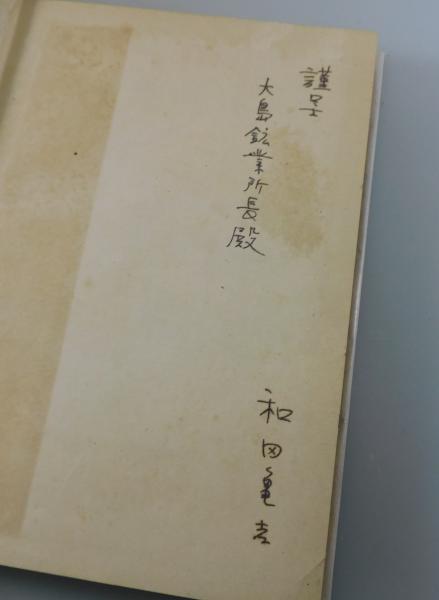 謹呈
大島鉱業所長殿
和田亀吉